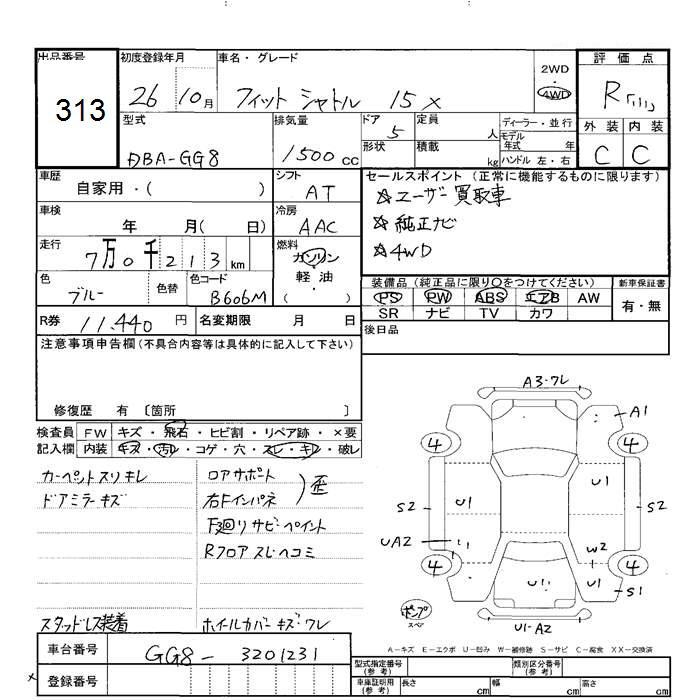 出品番号
313
初度登録年月
26 10月
車名・グレード
フィット シャトル 15X
2WD
4WD
評価点
R
外装 内装
C C
型式
DBA-GG8
排気量
1500cc
ドア
5
定員
人
形状
積載
kg
ディーラー・並行
モデル年式
年
ハンドル 左・右
車歴
自家用・( )
シフト
AT
車検
年 月( 日)
冷房
AAC
走行
7万0千213km
燃料
ガソリン
軽油
( )
色
ブルー
色替
色コード
B606M
R券
11.440円
名変期限
月 日
セールスポイント(正常に機能するものに限ります)
☆ユーザー買取車
☆純正ナビ
☆4WD
装備品(純正品に限り○をつけてください)
PS PW ABS エアB AW
SR ナビ TV カワ
新車保証書
有・無
後日品
注意事項申告欄(不具合内容等は具体的に記入して下さい)
修復歴 有 〔箇所 〕
検査員記入欄
FW キズ・飛石・ヒビ割・リペア跡・×要
内装 キズ・汚レ・コゲ・穴・スレ・キレ・破レ
カーペットスリキレ
ドアミラーキズ
スタッドレス装着
ロアサポート
右Fインパネ
)歪
下廻りサビ・ペイント
Rフロアスレヘコミ
ホイールカバーキズ・ワレ
A3・ワレ
A1
4 4
U1
U1
S2 S2
UA2
W2
4 4
U1
U1
S1
U1-A2
ポンプ
スペア
A-キズ E-エクボ U-凹み W-補修跡 S-サビ C-腐食 XX-交換済
車台番号
GG8-3201231
× 登録番号
型式指定番号
(参考)
類別区分番号
(参考)
車庫証明用
(参考)
長さ cm
幅 cm
高さ cm